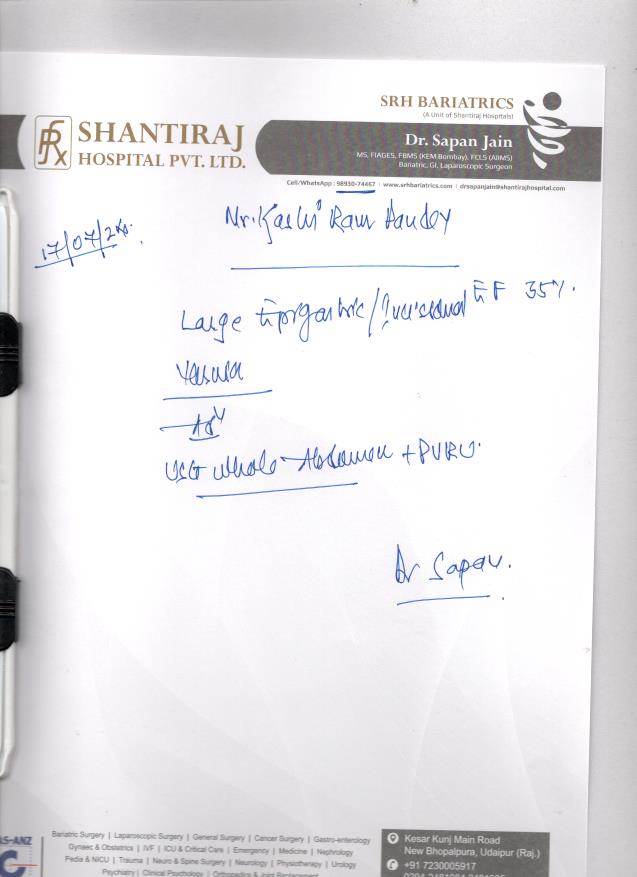 SRH BARIATRICS
(A Unit of Shantiraj Hospitals)
SHANTIRAJ
HOSPITAL PVT. LTD.
Dr. Sapan Jain
MS, FIAGES, FBMS (KEM Bombay), FCLS (AIIMS)
Bariatric, GI, Laparoscopic Surgeon
Cell/WhatsApp : 98930-74467 | www.srhbariatrics.com | drsapanjain@shantirajhospital.com
Mr. Kashi Ram
17/07/
Large Epigastric / Incisional EF 35%.
Adv
USG Whole Abdomen + PVRU.
Dr Sapan.
AS-ANZ
Bariatric Surgery | Laparoscopic Surgery | General Surgery | Cancer Surgery | Gastro-enterology
Gynaec & Obstetrics | IVF | ICU & Critical Care | Emergency | Medicine | Nephrology
Pedia & NICU | Trauma | Neuro & Spine Surgery | Neurology | Physiotherapy | Urology
Psychiatry | Clinical Psychology | Orthopedics & Joint Replacement
Kesar Kunj Main Road
New Bhopalpura, Udaipur (Raj.)
+91 7230005917